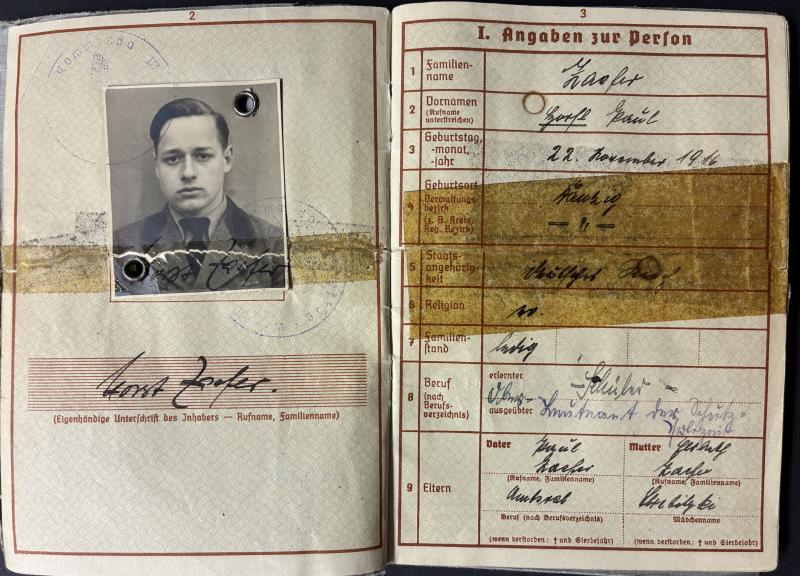 2
Kommando
Horst Zaefer.
(Eigenhändige Unterschrift des Inhabers — Rufname, Familienname)
3
I. Angaben zur Person
1 Familien-
name
Zaefer
2 Vornamen
(Rufname
unterstreichen)
Horst Paul
3 Geburtstag,
-monat,
-jahr
22. November 1916
4 Geburtsort
Verwaltungs-
bezirk
(z. B. Kreis,
Reg. Bezirk)
Danzig
— " —
5 Staats-
angehörig-
keit
Deutsches Reich
6 Religion
ev
7 Familien-
stand
ledig
8 Beruf
(nach
Berufs-
verzeichnis)
erlernter
- Schüler -
ausgeübter
Leutnant der Schutz-
polizei
9 Eltern
Vater
Paul
Zaefer
(Rufname, Familienname)
Amtsrat
Beruf (nach Berufsverzeichnis)
(wenn verstorben: † und Sterbejahr)
Mutter
Zaefer
(Rufname, Familienname)
Mädchenname
(wenn verstorben: † und Sterbejahr)